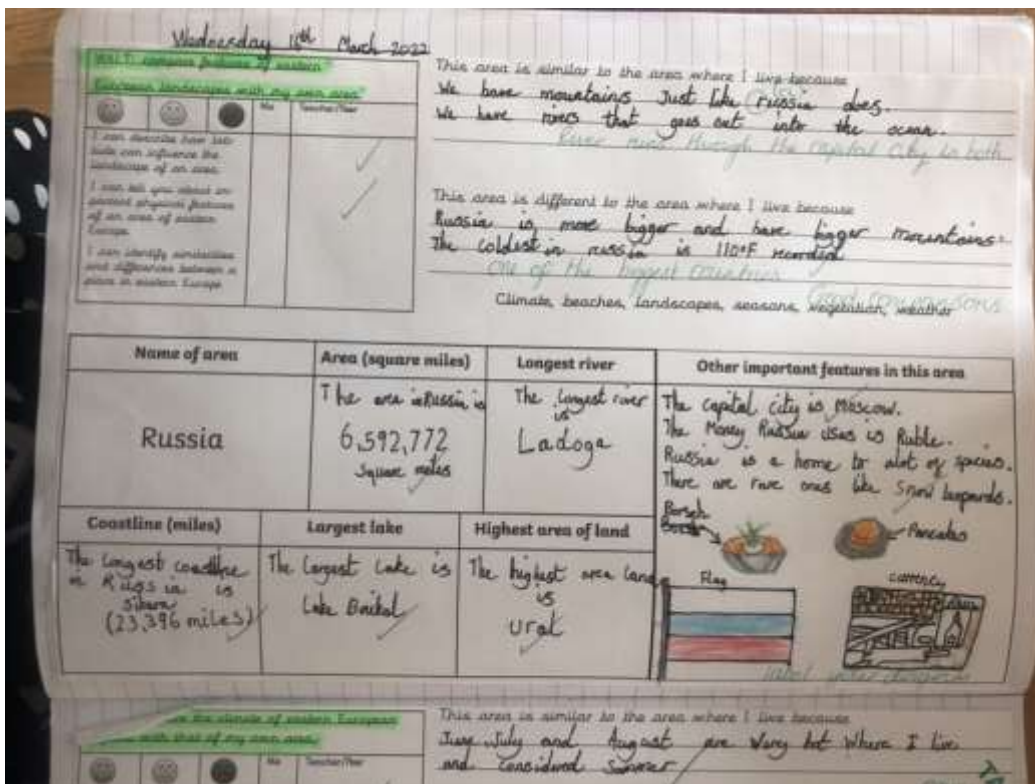 Wednesday 16th March 2022
WALT: compare features of eastern
European landscapes with my own area
Me
Teacher/Peer
I can describe how
can influence the
landscape of an area.
I can tell you about im-
portant physical features
of an area of eastern
Europe.
I can identify similarities
and differences between a
place in eastern Europe
This area is similar to the area where I live because
We have mountains Just like russia does.
We have rivers that goes out into the ocean.
River runs through the capital city in both
This area is different to the area where I live because
Russia is more bigger and have bigger mountains.
The coldest in russia is 110°F recorded
One of the biggest countries
Good comparisons
Climate, beaches, landscapes, seasons, vegetation, weather
Name of area
Russia
Area (square miles)
The area in Russia is
6,592,772
Square miles
Longest river
The longest river
is
Ladoga
Other important features in this area
The capital city is Moscow.
The Money Russia uses is Ruble.
Russia is a home to alot of species.
There are rare ones like Snow leopards.
Borsch
Pancakes
Flag
currency
label your diagram
Coastline (miles)
The longest coastline
in Russia is
(23,396 miles)
Largest lake
The largest Lake is
Lake Baikal
Highest area of land
The highest area land
is
Ural
the climate of eastern European
with that of my own area.
Me
Teacher/Peer
This area is similar to the area where I live because
June, July and August are Very hot Where I live
and considered Summer